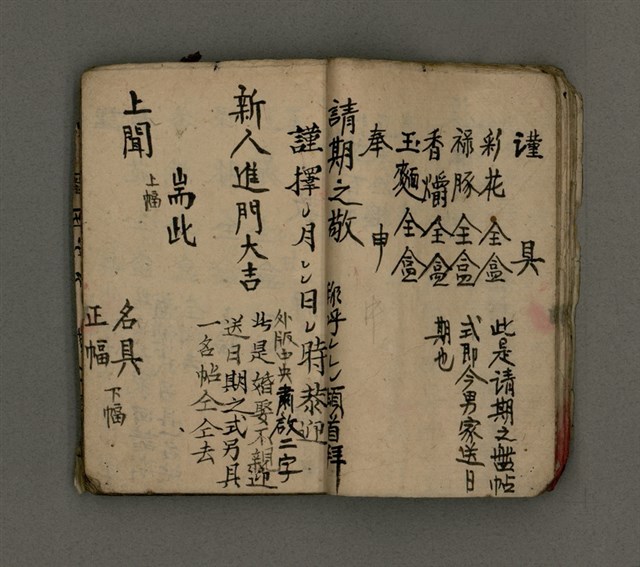 謹具
彩花全盒
祿豚全盒
香爝全盒
玉麵全盒
奉申
請期之敬
眷乎〻〻頓首拜
此是请期之盤帖
式即今男家送日
期也
謹擇〻月〻日〻時恭迎
新人進門大吉
耑此
上聞
上幅
外版中央肅啟二字
此是婚娶不親迎
送日期之式另具
一名帖仝仝去
名具
正幅
下幅